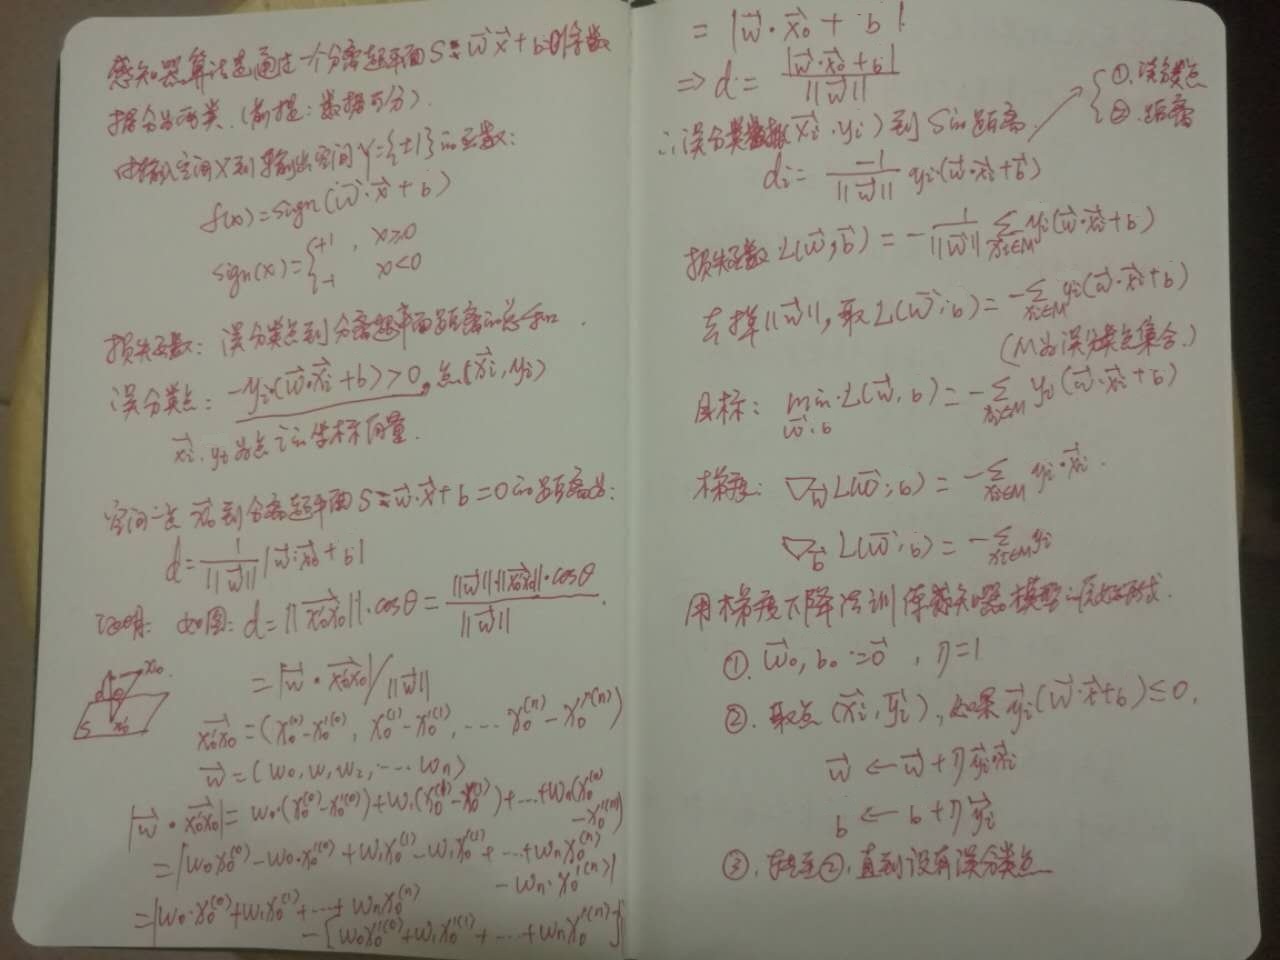 感知器算法是通过一个分离超平面 S: w⃗·x⃗+b=0 将数
据分为两类.(前提:数据可分).
由输入空间X到输出空间Y={±1}的函数:
f(x)=sign(w⃗·x⃗+b)
sign(x)={+1, x≥0
-1 x<0
损失函数: 误分类点到分离超平面距离的总和.
误分类点: -yi(w⃗·x⃗i+b)>0, 点(x⃗i,yi)
x⃗i,yi为点i的坐标向量.
空间一点 x⃗0 到分离超平面 S: w⃗·x⃗+b=0的距离为:
d=1/||w⃗|| |w⃗·x⃗0+b|
证明: 如图: d=||x0'x0||·cosθ=||w⃗||·||x0'x0||·cosθ/||w⃗||.
=|w⃗·x0'x0|/||w⃗||
x0 x0' d θ S
x0'x0=(x0^(0)-x0'^(0), x0^(1)-x0'^(1), ... x0^(n)-x0'^(n))
w⃗=(w0,w1,w2,...wn)
|w⃗·x0'x0|=w0·(x0^(0)-x0'^(0))+w1(x0^(1)-x0'^(1))+...+wn(x0^(n)
-x0'^(n))
=|w0x0^(0)-w0·x0'^(0)+w1x0^(1)-w1x0'^(1)+...+wnx0^(n)
-wn·x0'^(n)|
=|w0·x0^(0)+w1x0^(1)+...+wnx0^(n)
-[w0x0'^(0)+w1x0'^(1)+...+wnx0'^(n)]|
=|w⃗·x⃗0+b|
⇒ d=|w⃗·x⃗0+b|/||w⃗||
①.误分类点
②.距离
∴误分类数据(x⃗i,yi)到S的距离.
di=-1/||w⃗|| yi(w⃗·x⃗i+b⃗)
损失函数 L(w⃗,b⃗)=-1/||w⃗|| Σxi∈M yi(w⃗·x⃗i+b)
去掉||w⃗||,取L(w⃗,b)=-Σxi∈M yi(w⃗·x⃗i+b)
(M为误分类点集合.)
目标: min w⃗,b L(w⃗,b)=-Σxi∈M yi(w⃗·x⃗i+b)
梯度: ∇w⃗ L(w⃗,b)=-Σxi∈M yi·x⃗i.
∇b⃗ L(w⃗,b)=-Σxi∈M yi
用梯度下降法训练感知器模型的原始形式.
①. w⃗0,b0:=0⃗, η=1
②. 取点(x⃗i,y⃗i),如果y⃗i(w⃗·x⃗+b)≤0,
w⃗←w⃗+ηy⃗ix⃗i
b←b+ηy⃗i
③.转至②,直到没有误分类点